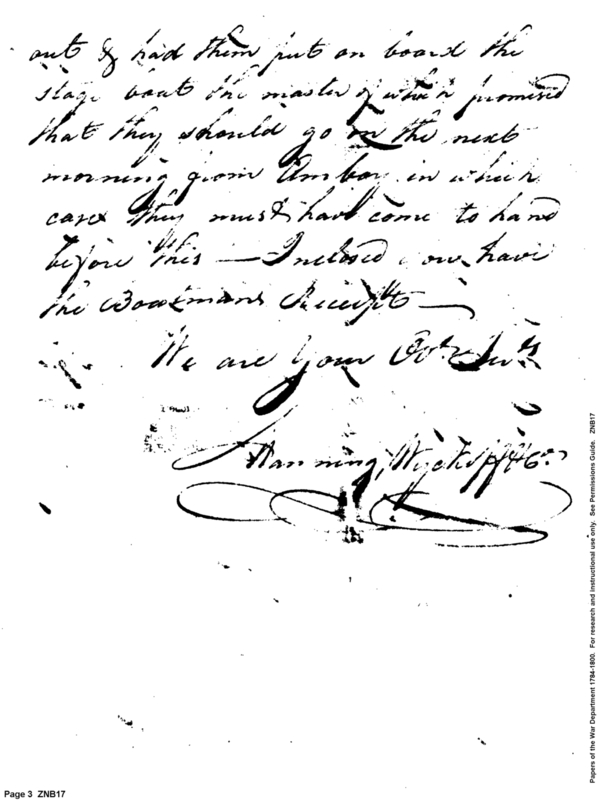 out & had them put on board the
stage boat the master of which promised
that they should go on the next
morning from Amboy in which
case they must have come to hand
before this — Inclosed you have
the Boatmans Receipt —
We are Your Obt Servts
Manning, Wyckoff & Co.
Page 3 ZNB17
Papers of the War Department 1784-1800. For research and instructional use only. See Permissions Guide. ZNB17